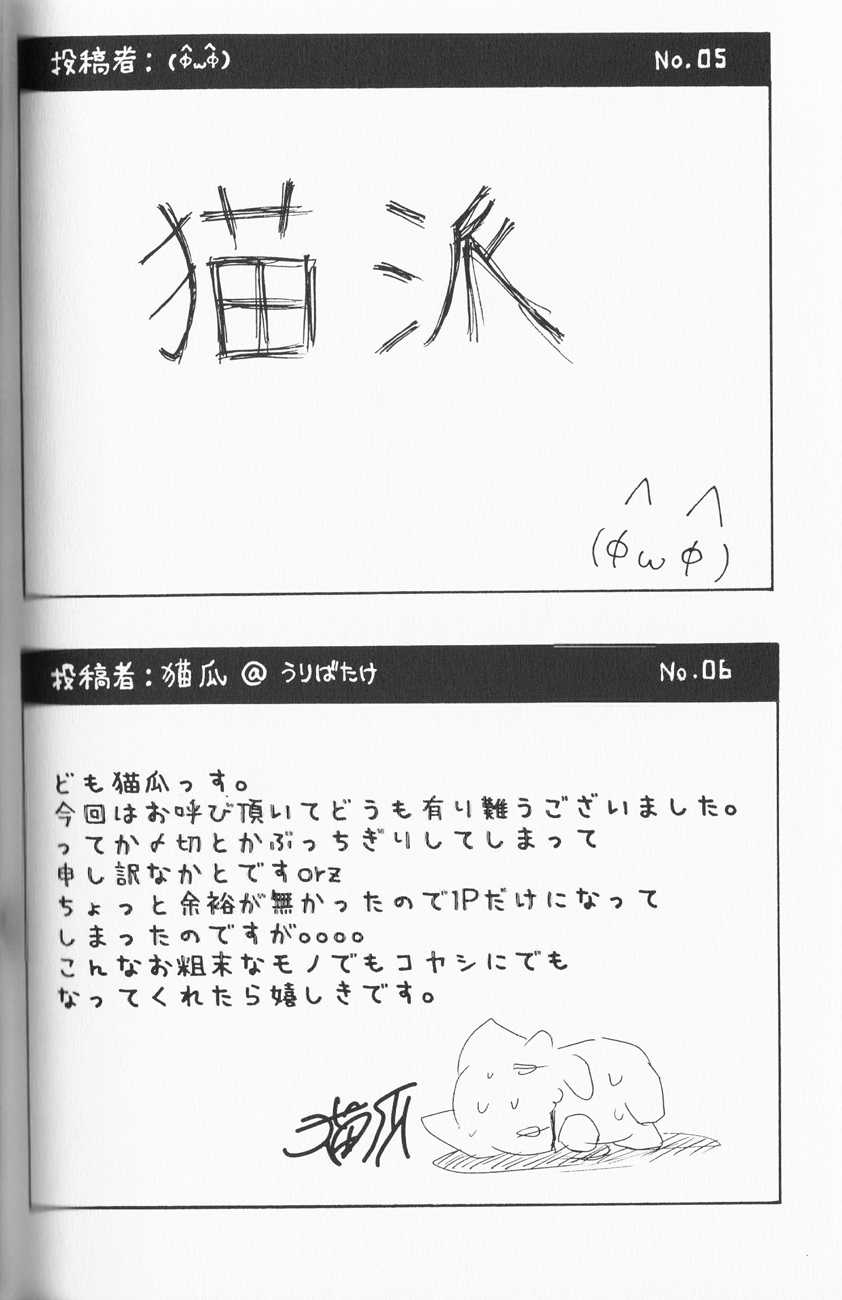 投稿者：(φ̂ωφ̂)
No.05
猫派
^ ^
(φωφ)
投稿者：猫瓜＠うりばたけ
No.06
ども猫瓜っす。
今回はお呼び頂いてどうも有り難うございました。
ってか〆切とかぶっちぎりしてしまって
申し訳なかとですorz
ちょっと余裕が無かったので1Pだけになって
しまったのですが。。。。
こんなお粗末なモノでもコヤシにでも
なってくれたら嬉しきです。
猫瓜